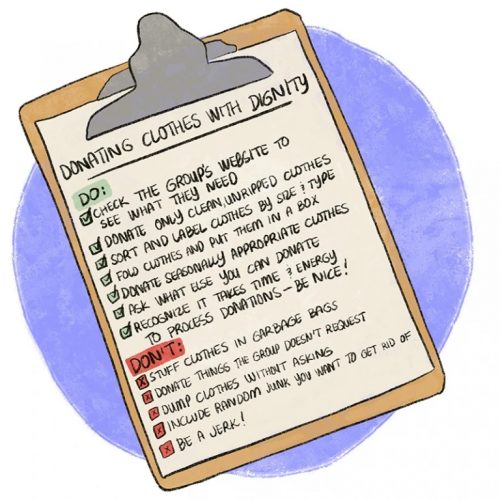 DONATING CLOTHES WITH DIGNITY
DO:
CHECK THE GROUP'S WEBSITE TO
SEE WHAT THEY NEED
DONATE ONLY CLEAN, UNRIPPED CLOTHES
SORT AND LABEL CLOTHES BY SIZE & TYPE
FOLD CLOTHES AND PUT THEM IN A BOX
DONATE SEASONALLY APPROPRIATE CLOTHES
ASK WHAT ELSE YOU CAN DONATE
RECOGNIZE IT TAKES TIME & ENERGY
TO PROCESS DONATIONS - BE NICE!
DON'T:
STUFF CLOTHES IN GARBAGE BAGS
DONATE THINGS THE GROUP DOESN'T REQUEST
DUMP CLOTHES WITHOUT ASKING
INCLUDE RANDOM JUNK YOU WANT TO GET RID OF
BE A JERK!